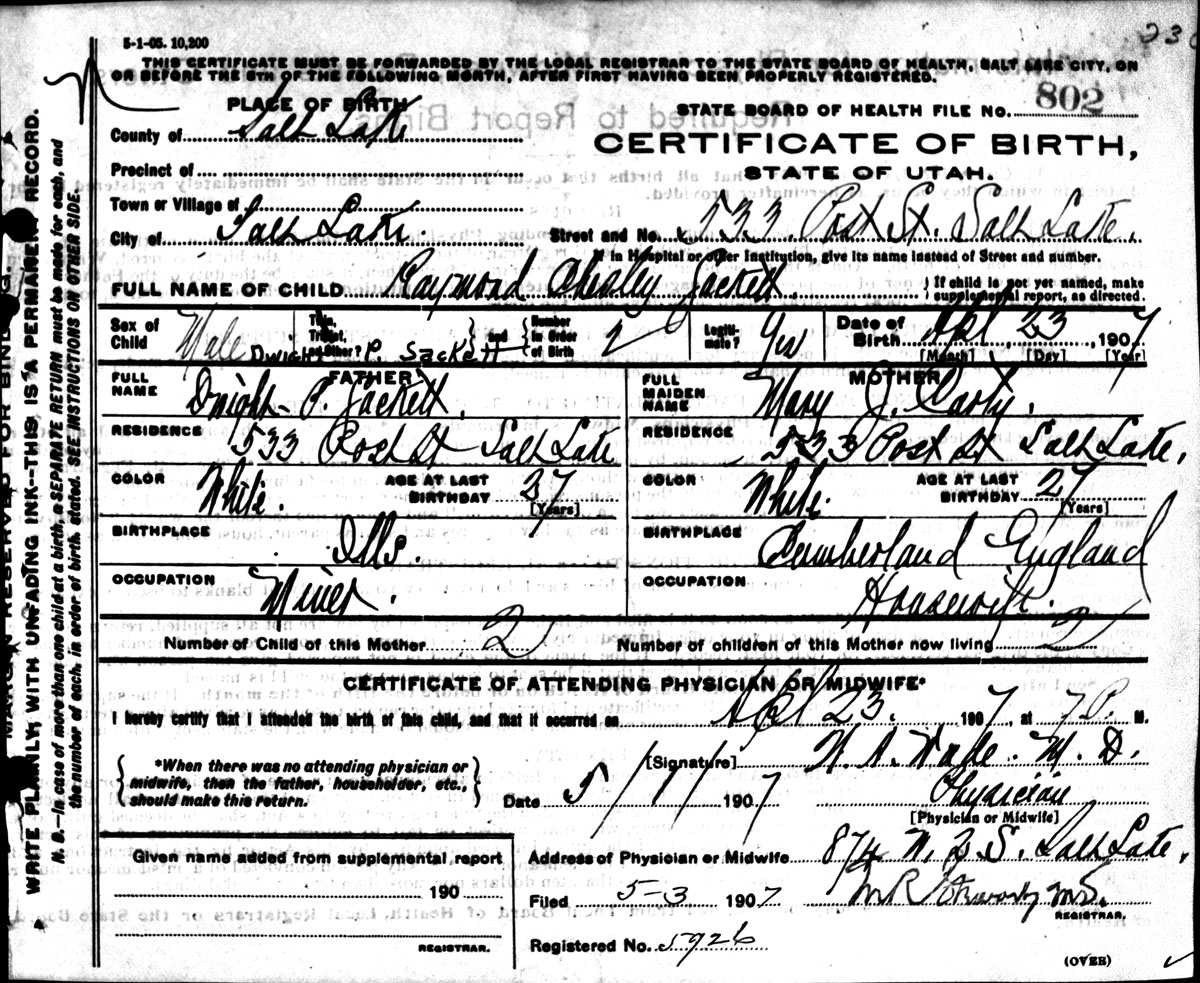 5-1-05. 10,200
23
THIS CERTIFICATE MUST BE FORWARDED BY THE LOCAL REGISTRAR TO THE STATE BOARD OF HEALTH, SALT LAKE CITY, ON
OR BEFORE THE 5TH OF THE FOLLOWING MONTH, AFTER FIRST HAVING BEEN PROPERLY REGISTERED.
PLACE OF BIRTH
STATE BOARD OF HEALTH FILE NO. 802
County of Salt Lake
CERTIFICATE OF BIRTH,
STATE OF UTAH.
Precinct of
Town or Village of
City of Salt Lake. Street and No. 533 Post St. Salt Lake.
If in Hospital or other Institution, give its name instead of Street and number.
FULL NAME OF CHILD Raymond Chesley Sackett. { If child is not yet named, make supplemental report, as directed.
Sex of Child Male Twin, Triplet, or Other? } and { Number in Order of Birth 2 Legitimate? Yes Date of Birth Apl 23, 1907
[Month] [Day] [Year]
Dwight P. Sackett
FATHER MOTHER
FULL NAME Dwight P. Sackett. FULL MAIDEN NAME Mary J. Carty.
RESIDENCE 533 Post St Salt Lake RESIDENCE 533 Post St Salt Lake.
COLOR White. AGE AT LAST BIRTHDAY 37 [Years] COLOR White. AGE AT LAST BIRTHDAY 27 [Years]
BIRTHPLACE Ills. BIRTHPLACE Cumberland England
OCCUPATION Miner. OCCUPATION Housewife.
Number of Child of this Mother 2 Number of children of this Mother now living 2
CERTIFICATE OF ATTENDING PHYSICIAN OR MIDWIFE*
I hereby certify that I attended the birth of this child, and that it occurred on Apl 23. 1907, at 7 P. M.
{ *When there was no attending physician or midwife, then the father, householder, etc., should make this return. }
[Signature] Wade. M. D.
Date 5/1/ 1907 Physician
[Physician or Midwife]
Given name added from supplemental report
Address of Physician or Midwife 874 W. 2 S. Salt Lake.
190
Filed 5-3 1907
REGISTRAR.
REGISTRAR.
Registered No. 5926
(OVER)
MARGIN RESERVED FOR BINDING.
WRITE PLAINLY, WITH UNFADING INK--THIS IS A PERMANENT RECORD.
N. B.--In case of more than one child at a birth, a SEPARATE RETURN must be made for each, and
the number of each, in order of birth, stated. SEE INSTRUCTIONS ON OTHER SIDE.